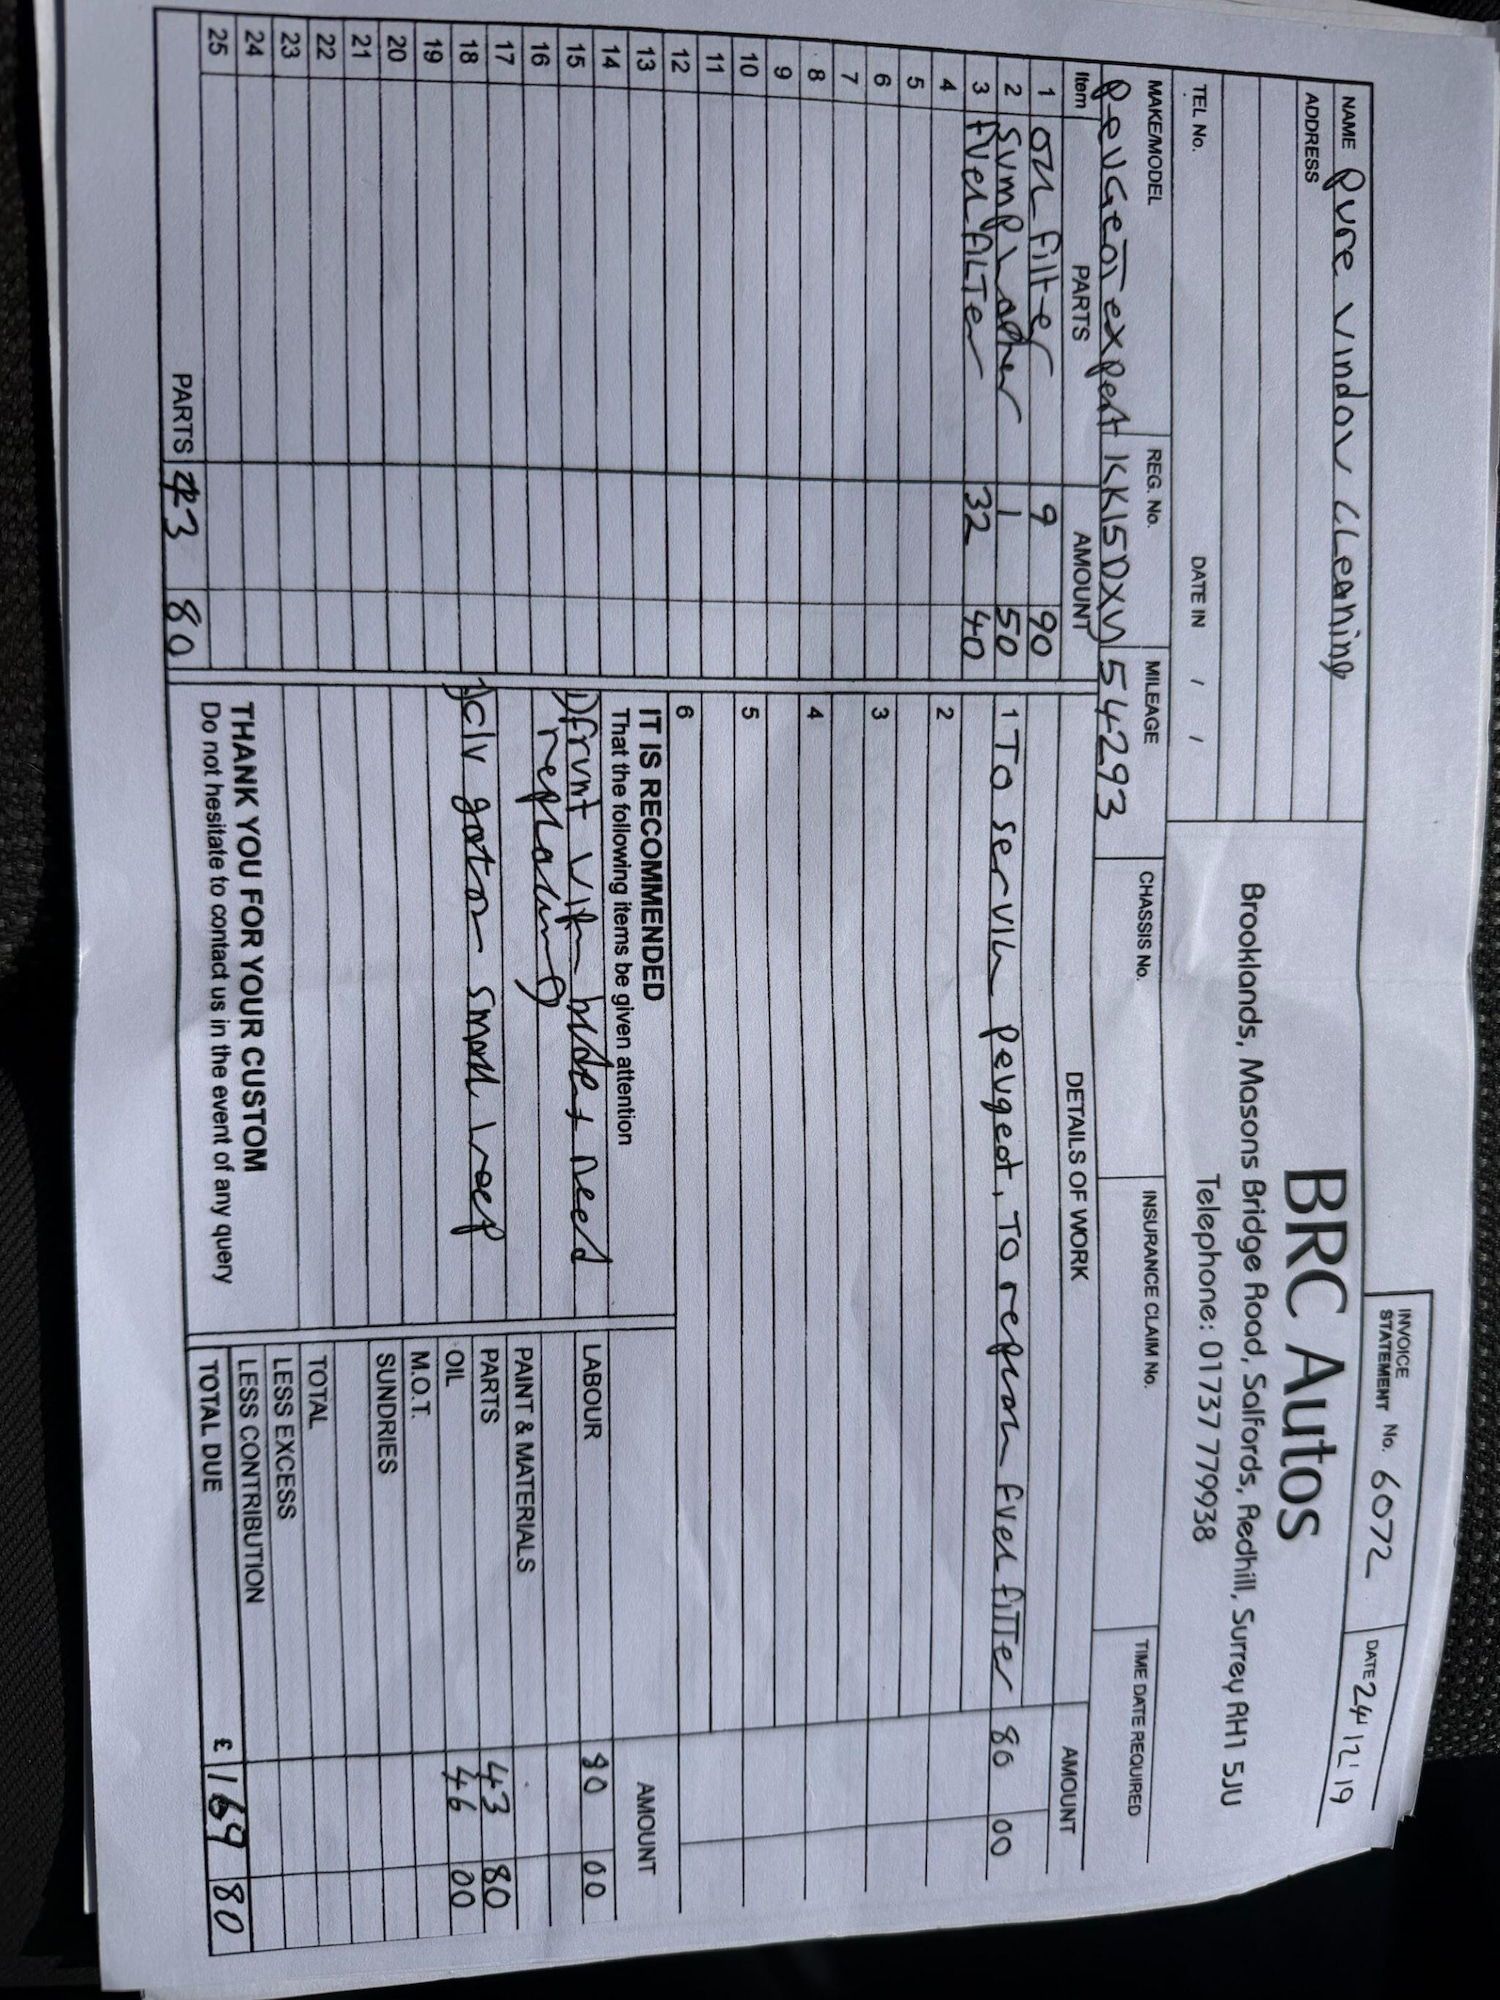 INVOICE
STATEMENT No. 6072 DATE 24 12 19
BRC Autos
Brooklands, Masons Bridge Road, Salfords, Redhill, Surrey RH1 5JU
Telephone: 01737 779938
NAME Pure Window Cleaning
ADDRESS
TEL No. DATE IN / /
MAKE/MODEL REG. No. MILEAGE CHASSIS No. INSURANCE CLAIM No. TIME DATE REQUIRED
Peugeot expert 54293
Item PARTS AMOUNT DETAILS OF WORK AMOUNT
1 oil filter 9 90 1 To service peugeot, To replace fuel filter 80 00
2 sump washer 1 50
3 fuel filter 32 40 2
4
5 3
6
7 4
8
9 5
10
11 6
12
13 IT IS RECOMMENDED AMOUNT
14 That the following items be given attention
15 1) front need LABOUR 80 00
16 replacing PAINT & MATERIALS
17 PARTS 43 80
18 gator small weep OIL 46 00
19 M.O.T.
20 SUNDRIES
21
22 TOTAL
23 LESS EXCESS
24 THANK YOU FOR YOUR CUSTOM LESS CONTRIBUTION
25 Do not hesitate to contact us in the event of any query TOTAL DUE £ 169 80
PARTS 43 80